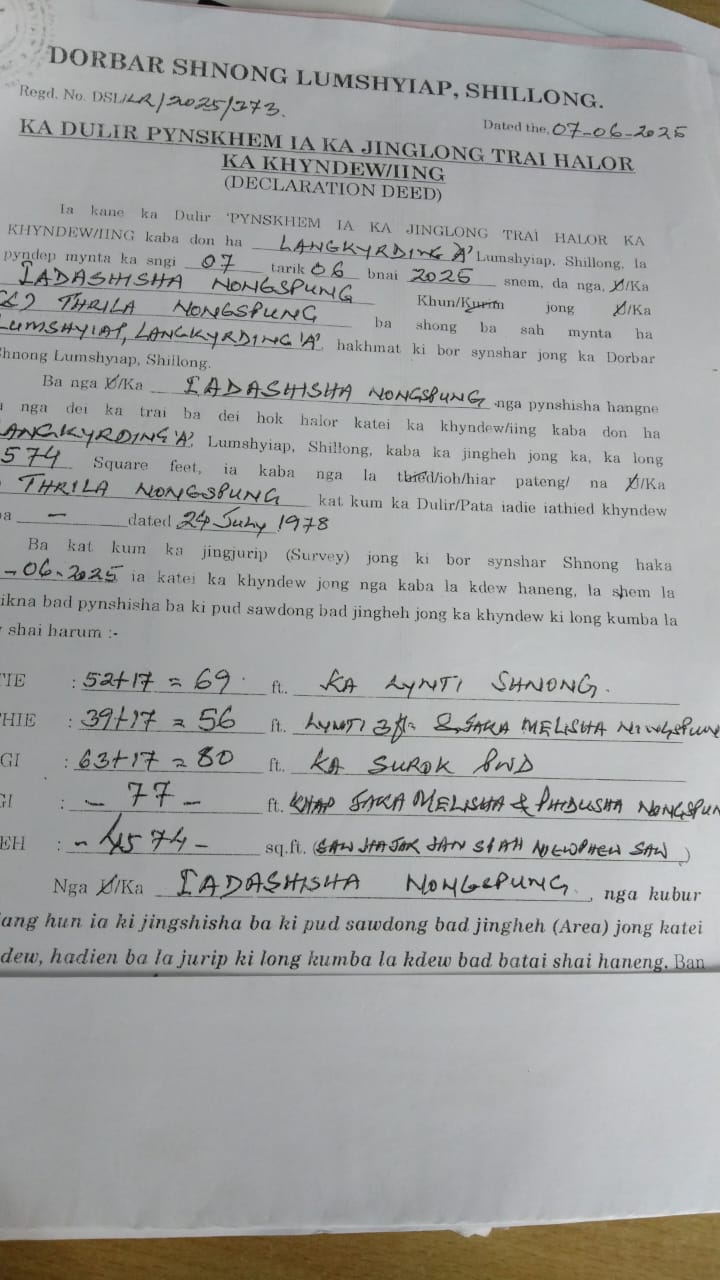 DORBAR SHNONG LUMSHYIAP, SHILLONG.
Regd. No. DSL/LR/2025/373.
Dated the. 07-06-2025
KA DULIR PYNSKHEM IA KA JINGLONG TRAI HALOR
KA KHYNDEW/IING
(DECLARATION DEED)
Ia kane ka Dulir 'PYNSKHEM IA KA JINGLONG TRAI HALOR KA
KHYNDEW/IING kaba don ha LANGKYRDING 'A' Lumshyiap, Shillong, la
pyndep mynta ka sngi 07 tarik 06 bnai 2025 snem, da nga, U/Ka
IADASHISHA NONGSPUNG Khun/Kurim jong U/Ka
(L) THRILA NONGSPUNG ba shong ba sah mynta ha
LUMSHYIAP, LANGKYRDING 'A', hakhmat ki bor synshar jong ka Dorbar
Shnong Lumshyiap, Shillong.
Ba nga U/Ka IADASHISHA NONGSPUNG nga pynshisha hangne
nga dei ka trai ba dei hok halor katei ka khyndew/iing kaba don ha
LANGKYRDING 'A', Lumshyiap, Shillong, kaba ka jingheh jong ka, ka long
574 Square feet, ia kaba nga la thied/ioh/hiar pateng/ na U/Ka
THRILA NONGSPUNG kat kum ka Dulir/Pata iadie iathied khyndew
a - dated 24 July 1978
Ba kat kum ka jingjurip (Survey) jong ki bor synshar Shnong haka
-06-2025 ia katei ka khyndew jong nga kaba la kdew haneng, la shem la
ikna bad pynshisha ba ki pud sawdong bad jingheh jong ka khyndew ki long kumba la
shai harum :-
TIE : 52+17 = 69 ft. KA LYNTI SHNONG.
HIE : 39+17 = 56 ft. LYNTI 3ft & JAKA MELISHA NONGSPUN
GI : 63+17 = 80 ft. KA SUROK PWD
GI : - 77 - ft. KHAP JAKA MELISHA & PHIDUSHA NONGSPUN
EH : - 4574 - sq.ft. (SAW HAJAR SAN SPAH NEWPHEW SAW)
Nga U/Ka IADASHISHA NONGSPUNG, nga kubur
ang hun ia ki jingshisha ba ki pud sawdong bad jingheh (Area) jong katei
dew, hadien ba la jurip ki long kumba la kdew bad batai shai haneng. Ban